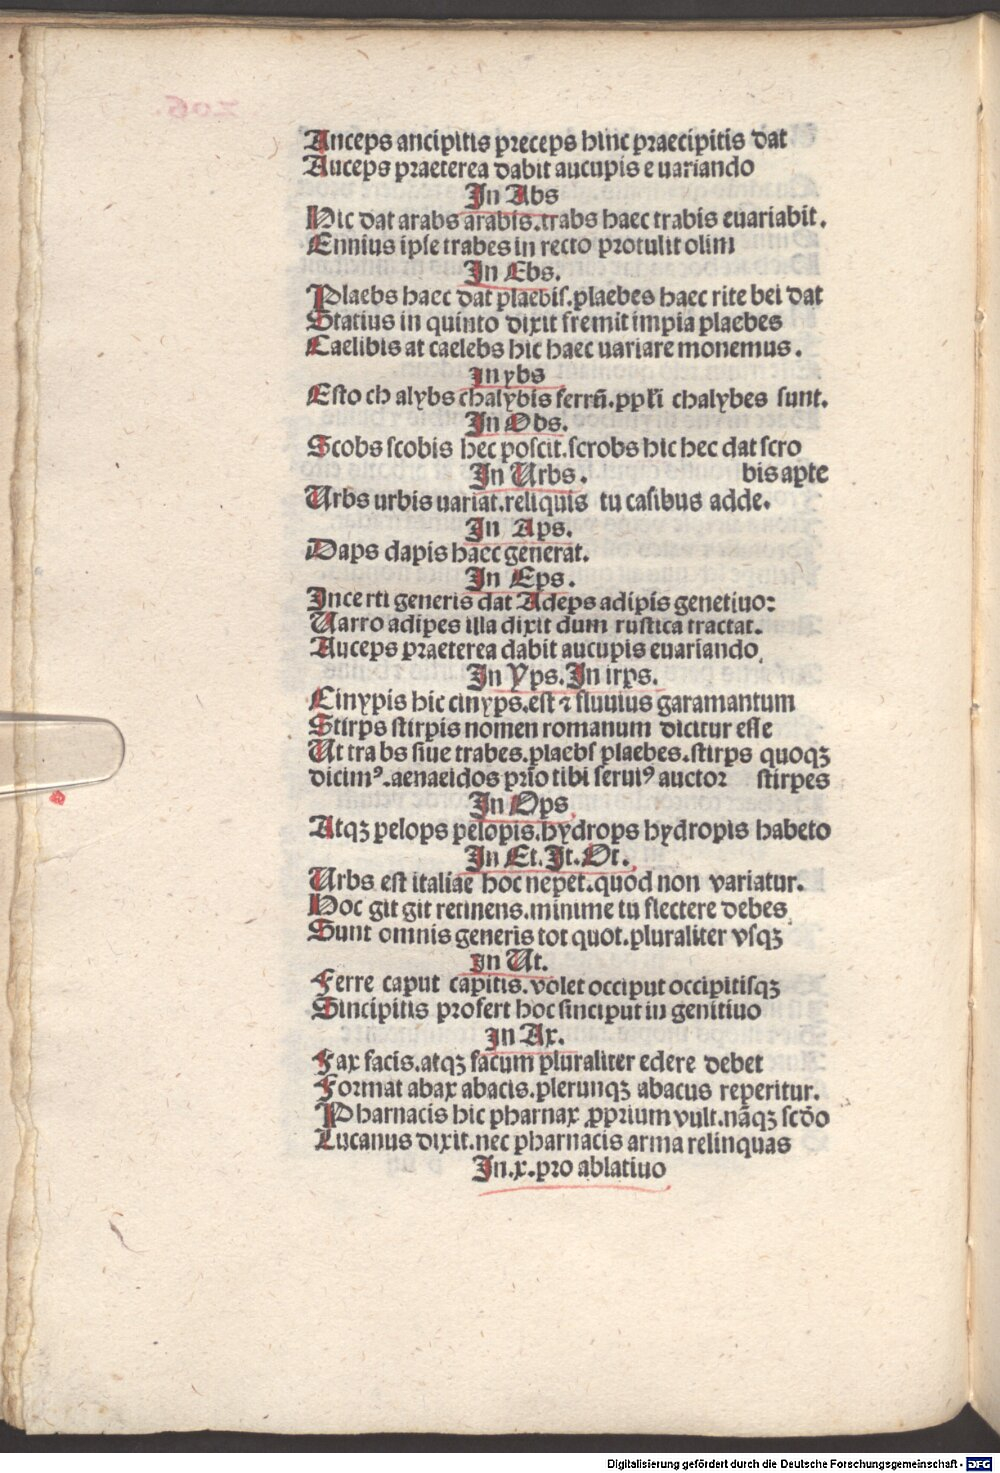 Anceps ancipitis preceps hinc praecipitis dat
Auceps praeterea dabit aucupis e uariando
In Abs
Hic dat arabs arabis.trabs haec trabis euariabit.
Ennius ipse trabes in recto protulit olim
In Ebs.
Plaebs haec dat plaebis.plaebes haec rite bei dat
Statius in quinto dixit fremit impia plaebes
Caelibis at caelebs hic haec uariare monemus.
In ybs
Esto ch alybs chalybis ferrū.ppłi chalybes sunt.
In Obs.
Scobs scobis hec poscit.scrobs hic hec dat scro
In Urbs.
bis apte
Urbs urbis uariat.reliquis tu casibus adde.
In Aps.
Daps dapis haec generat.
In Eps.
Incerti generis dat Adeps adipis genetiuo:
Uarro adipes illa dixit dum rustica tractat.
Auceps praeterea dabit aucupis euariando.
In Yps.In irps.
Cinypis hic cinyps.est ⁊ fluuius garamantum
Stirps stirpis nomen romanum dicitur esse
Ut tra bs siue trabes.plaebs plaebes.stirps quoqꝫ
dicimꝰ.aenaeidos prīo tibi seruiꝰ auctor stirpes
In Ops
Atqꝫ pelops pelopis.hydrops hydropis habeto
In Et.It.Ot.
Urbs est italiae hoc nepet.quod non variatur.
Hoc git git retinens.minime tu flectere debes
Sunt omnis generis tot quot.pluraliter vsqꝫ
In Ut.
Ferre caput capitis.volet occiput occipitisqꝫ
Sincipitis profert hoc sinciput in genitiuo
In Ax.
Fax facis.atqꝫ facum pluraliter edere debet
Format abax abacis.plerunqꝫ abacus reperitur.
Pharnacis hic pharnax ꝓprium vult.nāqꝫ scdo
Lucanus dixit.nec pharnacis arma relinquas
In.x.pro ablatiuo
Digitalisierung gefördert durch die Deutsche Forschungsgemeinschaft - DFG